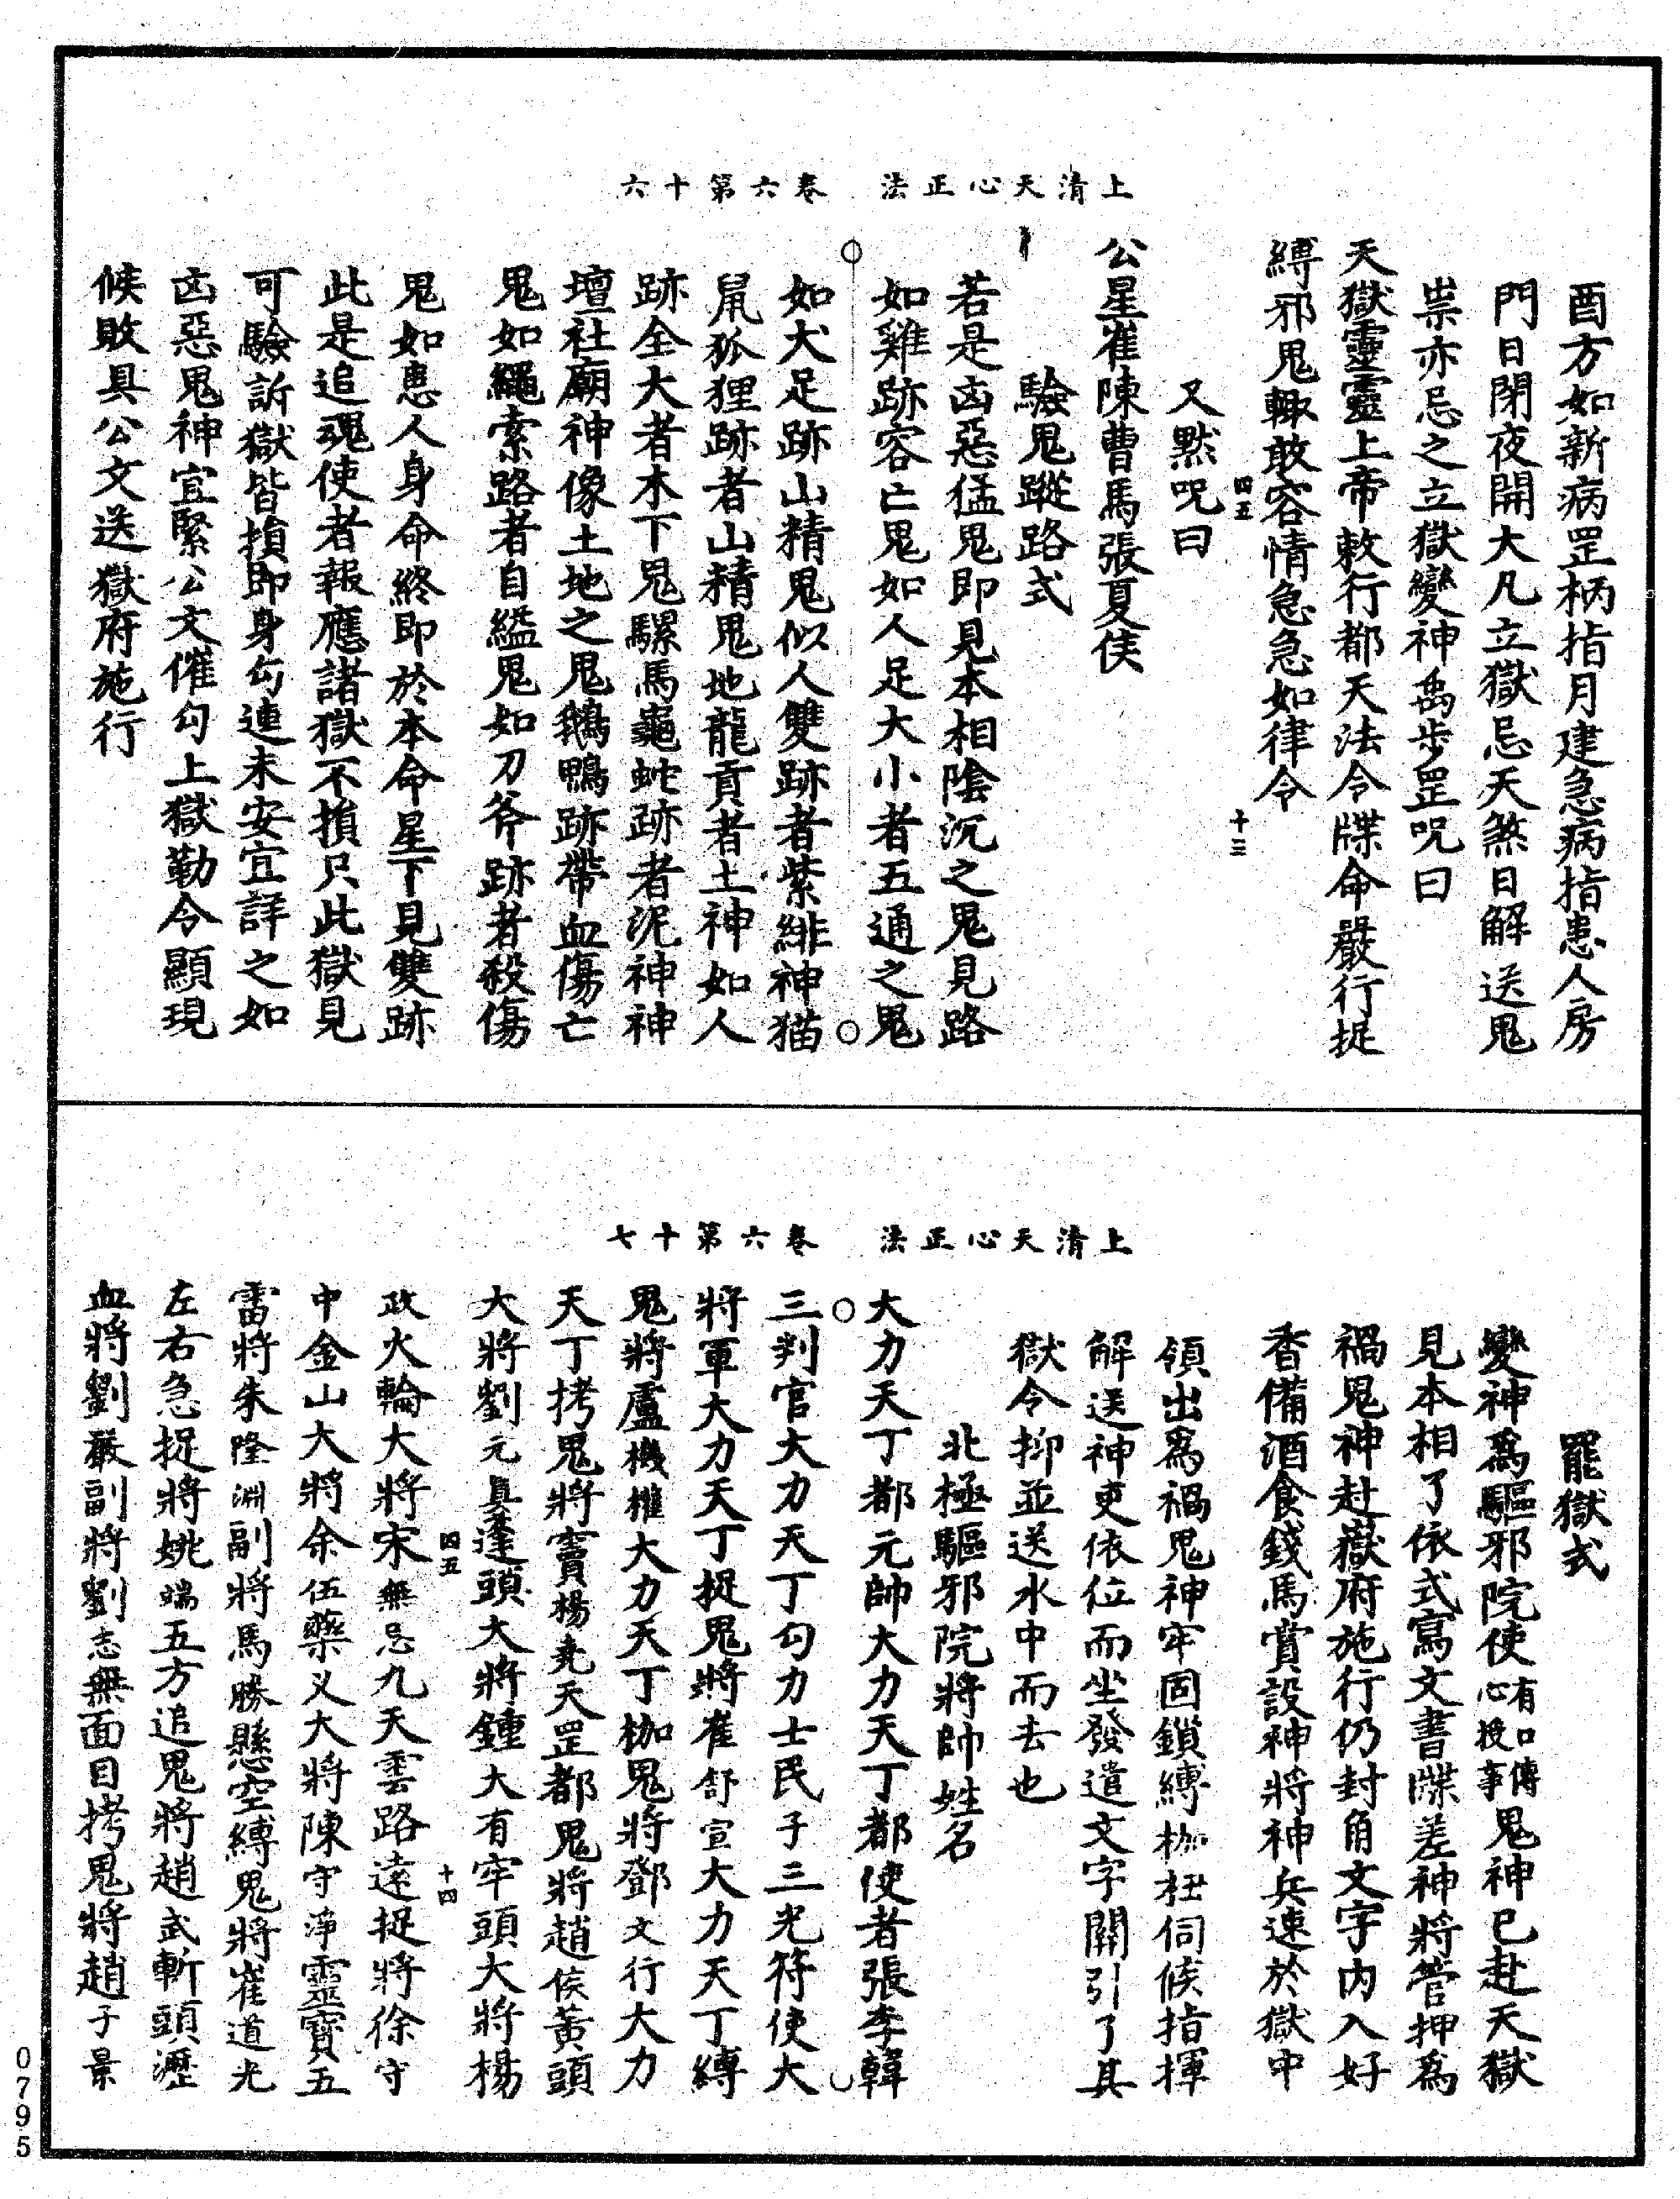 上清天心正法　卷六第十六
酉方如新病罡柄指月建急病指患人房
門日閉夜開大凡立獄忌天煞日解送鬼
祟亦忌之立獄變神禹步罡呪曰
天獄靈靈上帝敕行都天法令牒命嚴行捉
縛邪鬼輙敢容情急急如律令
四五　十三
又默呪曰
公星崔陳曹馬張夏侯
驗鬼蹤路式
若是凶惡猛鬼即見本相陰沉之鬼見路
如雞跡容亡鬼如人足大小者五通之鬼
如犬足跡山精鬼似人雙跡者紫緋神猫
鼠狐狸跡者山精鬼地龍貢者土神如人
跡全大者木下鬼騾馬龜蛇跡者泥神神
壇社廟神像土地之鬼鵝鴨跡帶血傷亡
鬼如繩索路者自縊鬼如刀斧跡者殺傷
鬼如患人身命終即於本命星下見雙跡
此是追魂使者報應諸獄不損只此獄見
可驗訢獄皆損即身勾連未安宜詳之如
凶惡鬼神宜緊公文催勾上獄勤令顯現
候敗具公文送獄府施行
上清天心正法　卷六第十七
罷獄式
變神為驅邪院使有口傳心授事鬼神已赴天獄
見本相了依式寫文書牒差神將管押為
禍鬼神赴嶽府施行仍封角文字內入好
香備酒食錢馬賞設神將神兵速於獄中
領出為禍鬼神牢固鎖縛枷杻伺候指揮
解送神吏依位而坐發遣文字關引了其
獄令抑並送水中而去也
北極驅邪院將帥姓名
大力天丁都元帥大力天丁都使者張李韓
三判官大力天丁勾力士民子三光符使大
將軍大力天丁捉鬼將崔舒宣大力天丁縛
鬼將盧機權大力天丁枷鬼將鄧文行大力
天丁拷鬼將竇楊堯天罡都鬼將趙侯黃頭
大將劉元真蓬頭大將鍾大有牢頭大將楊
四五　十四
政火輪大將宋無忌九天雲路遠捉將徐守
中金山大將余伍藥乂大將陳守淨靈寶五
雷將朱隆淵副將馬勝懸空縛鬼將崔道光
左右急捉將姚端五方追鬼將趙武斬頭瀝
血將劉嚴副將劉志無面目拷鬼將趙子景
0795